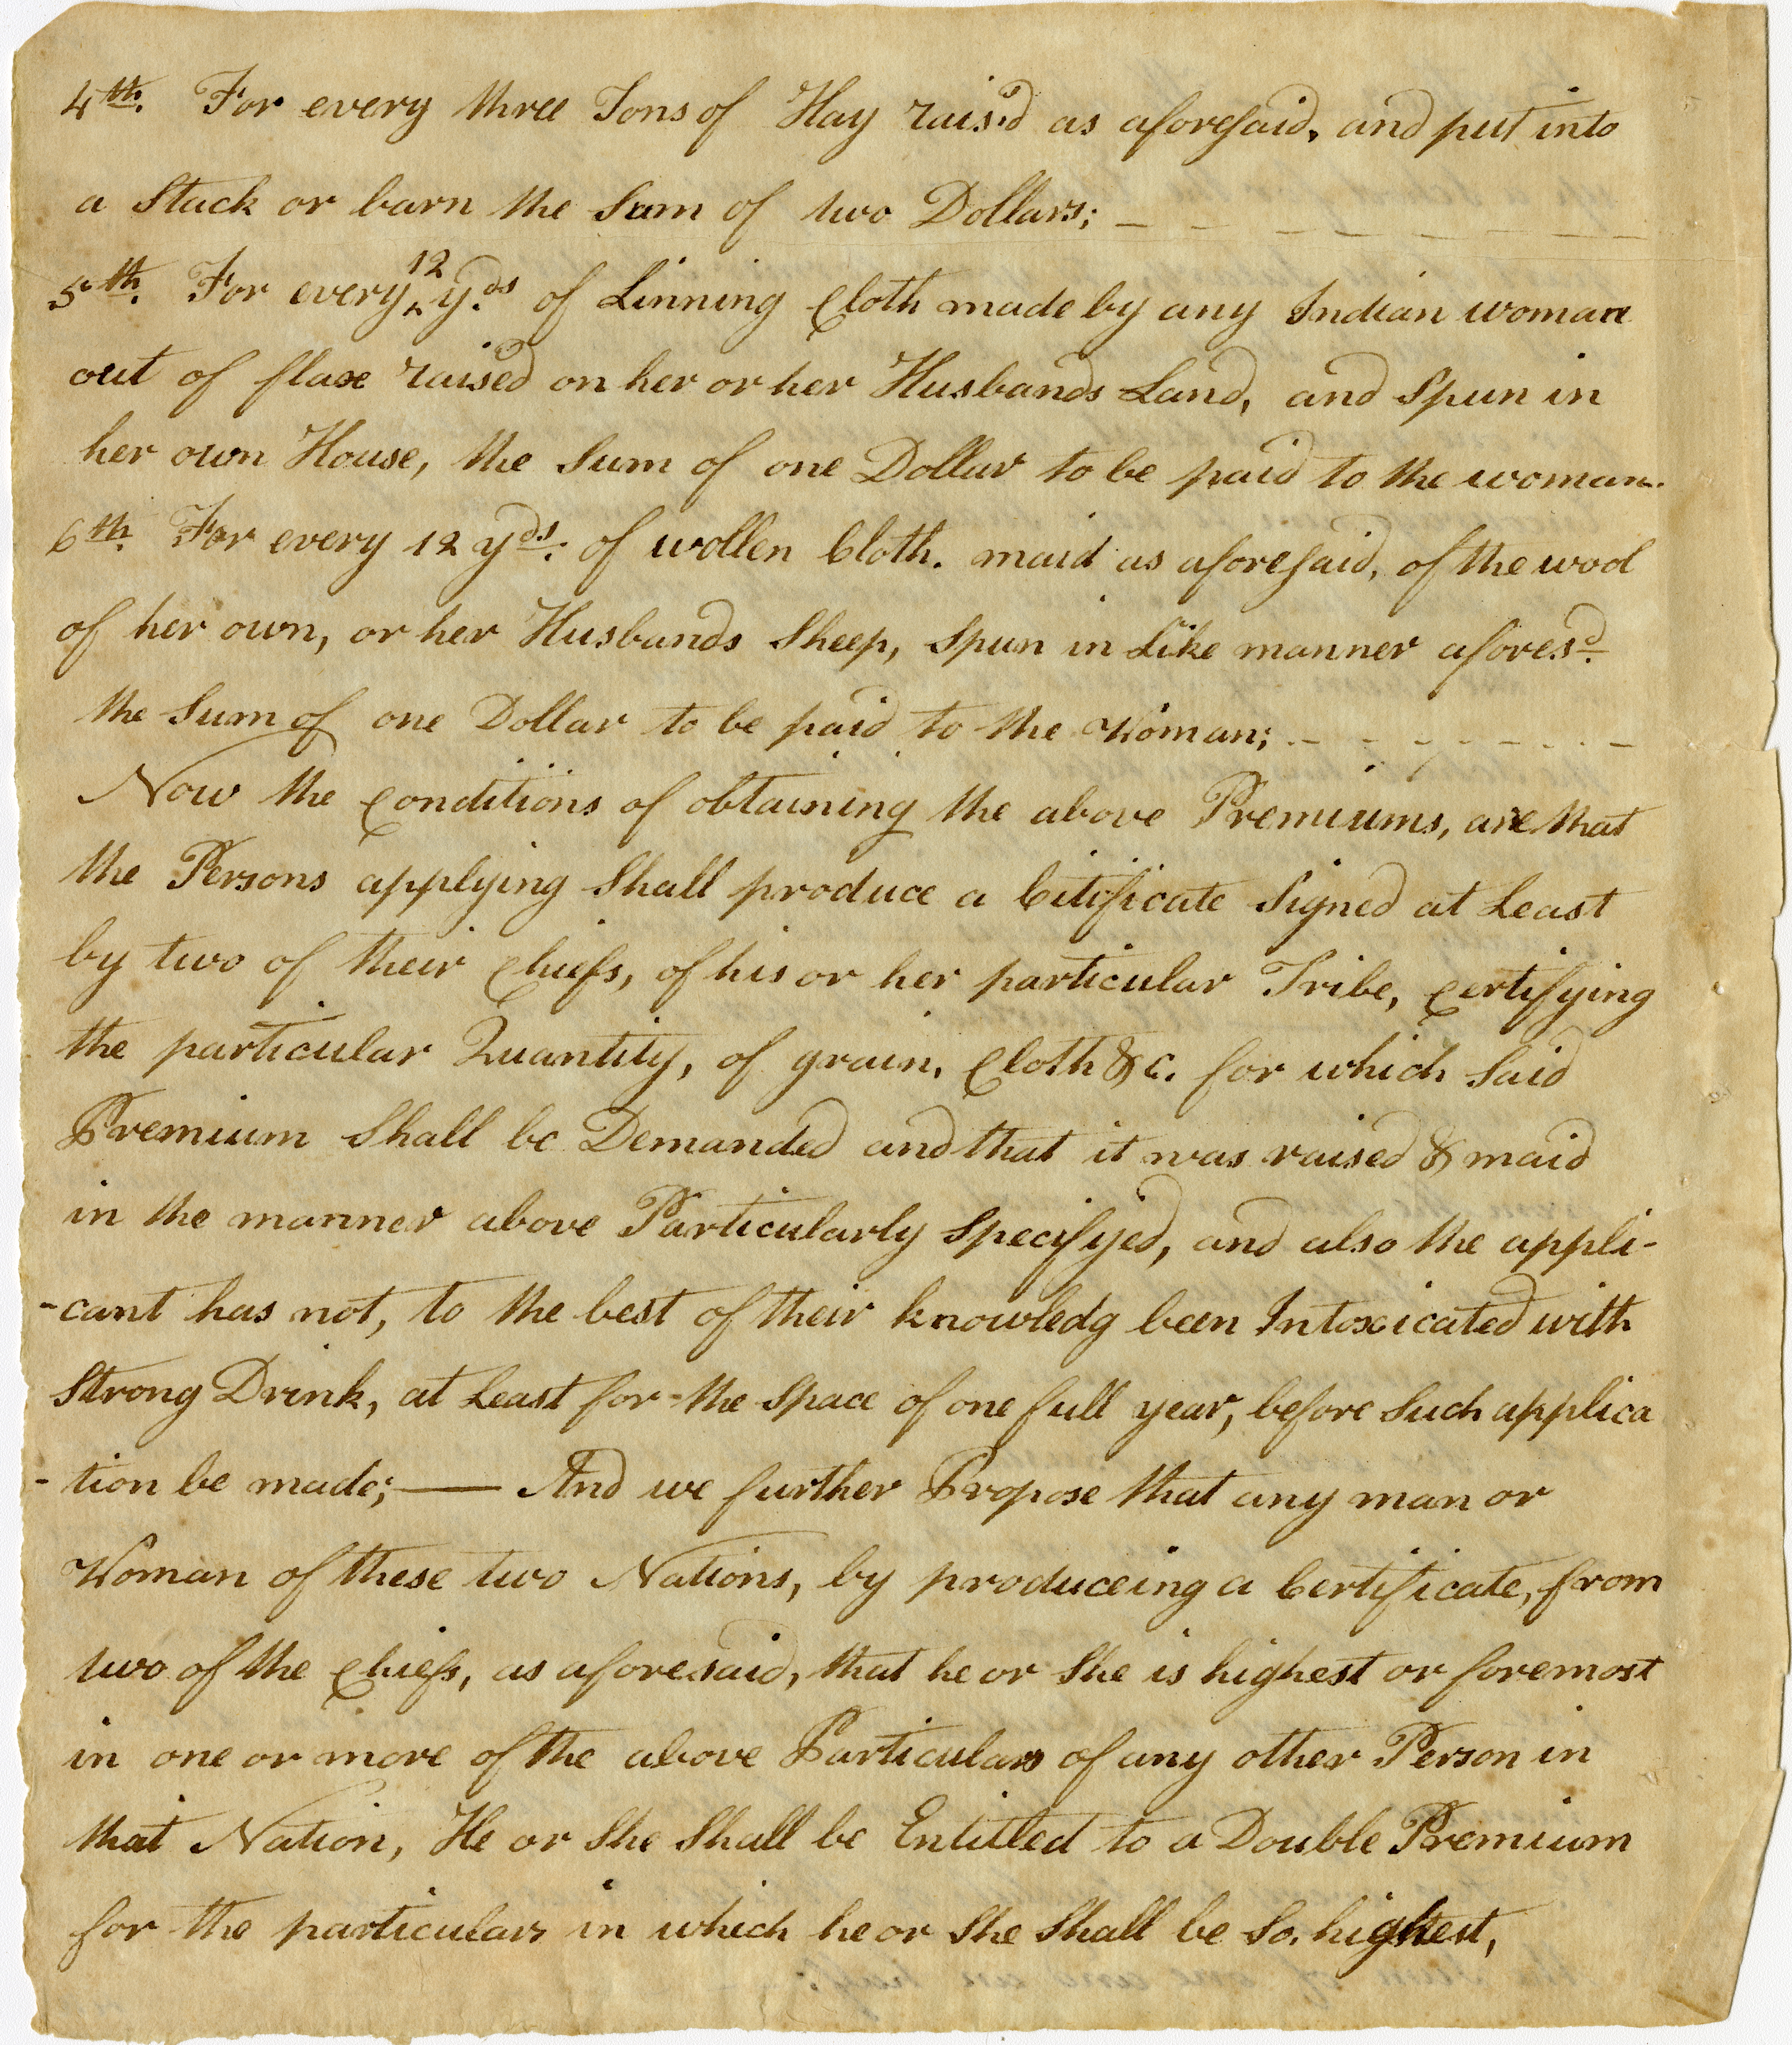 4th. For every three Tons of Hay rais'd as aforesaid, and put into
a Stack or barn the Sum of two Dollars; — — — — — — —
5th. For every 12 yds. of Linning Cloth made by any Indian woman
out of flax raised on her or her Husbands Land, and Spun in
her own House, the Sum of one Dollar to be paid to the woman.
6th. For every 12 yds. of wollen Cloth. maid as aforesaid, of the wool
of her own, or her Husbands Sheep, Spun in Like manner afores.d
the Sum of one Dollar to be paid to the Woman; - - - - - - - -
Now the Conditions of obtaining the above Premiums, are that
the Persons applying Shall produce a Citificate Signed at Least
by two of their Chiefs, of his or her particular Tribe, Certifying
the particular Quantity, of grain, Cloth &c. for which Said
Premium Shall be Demanded and that it was raised & maid
in the manner above Particularly Specifyed, and also the appli-
-cant has not, to the best of their knowledg been Intoxicated with
Strong Drink, at Least for-the Space of one full year, before Such applica
-tion be made; —— And we further Propose that any man or
Woman of these two Nations, by produceing a Certificate, from
two of the Chiefs, as aforesaid, that he or She is highest or foremost
in one or more of the above Particulars of any other Person in
that Nation, He or She Shall be Entitled to a Double Premium
for the particulars in which he or She Shall be So, highest,